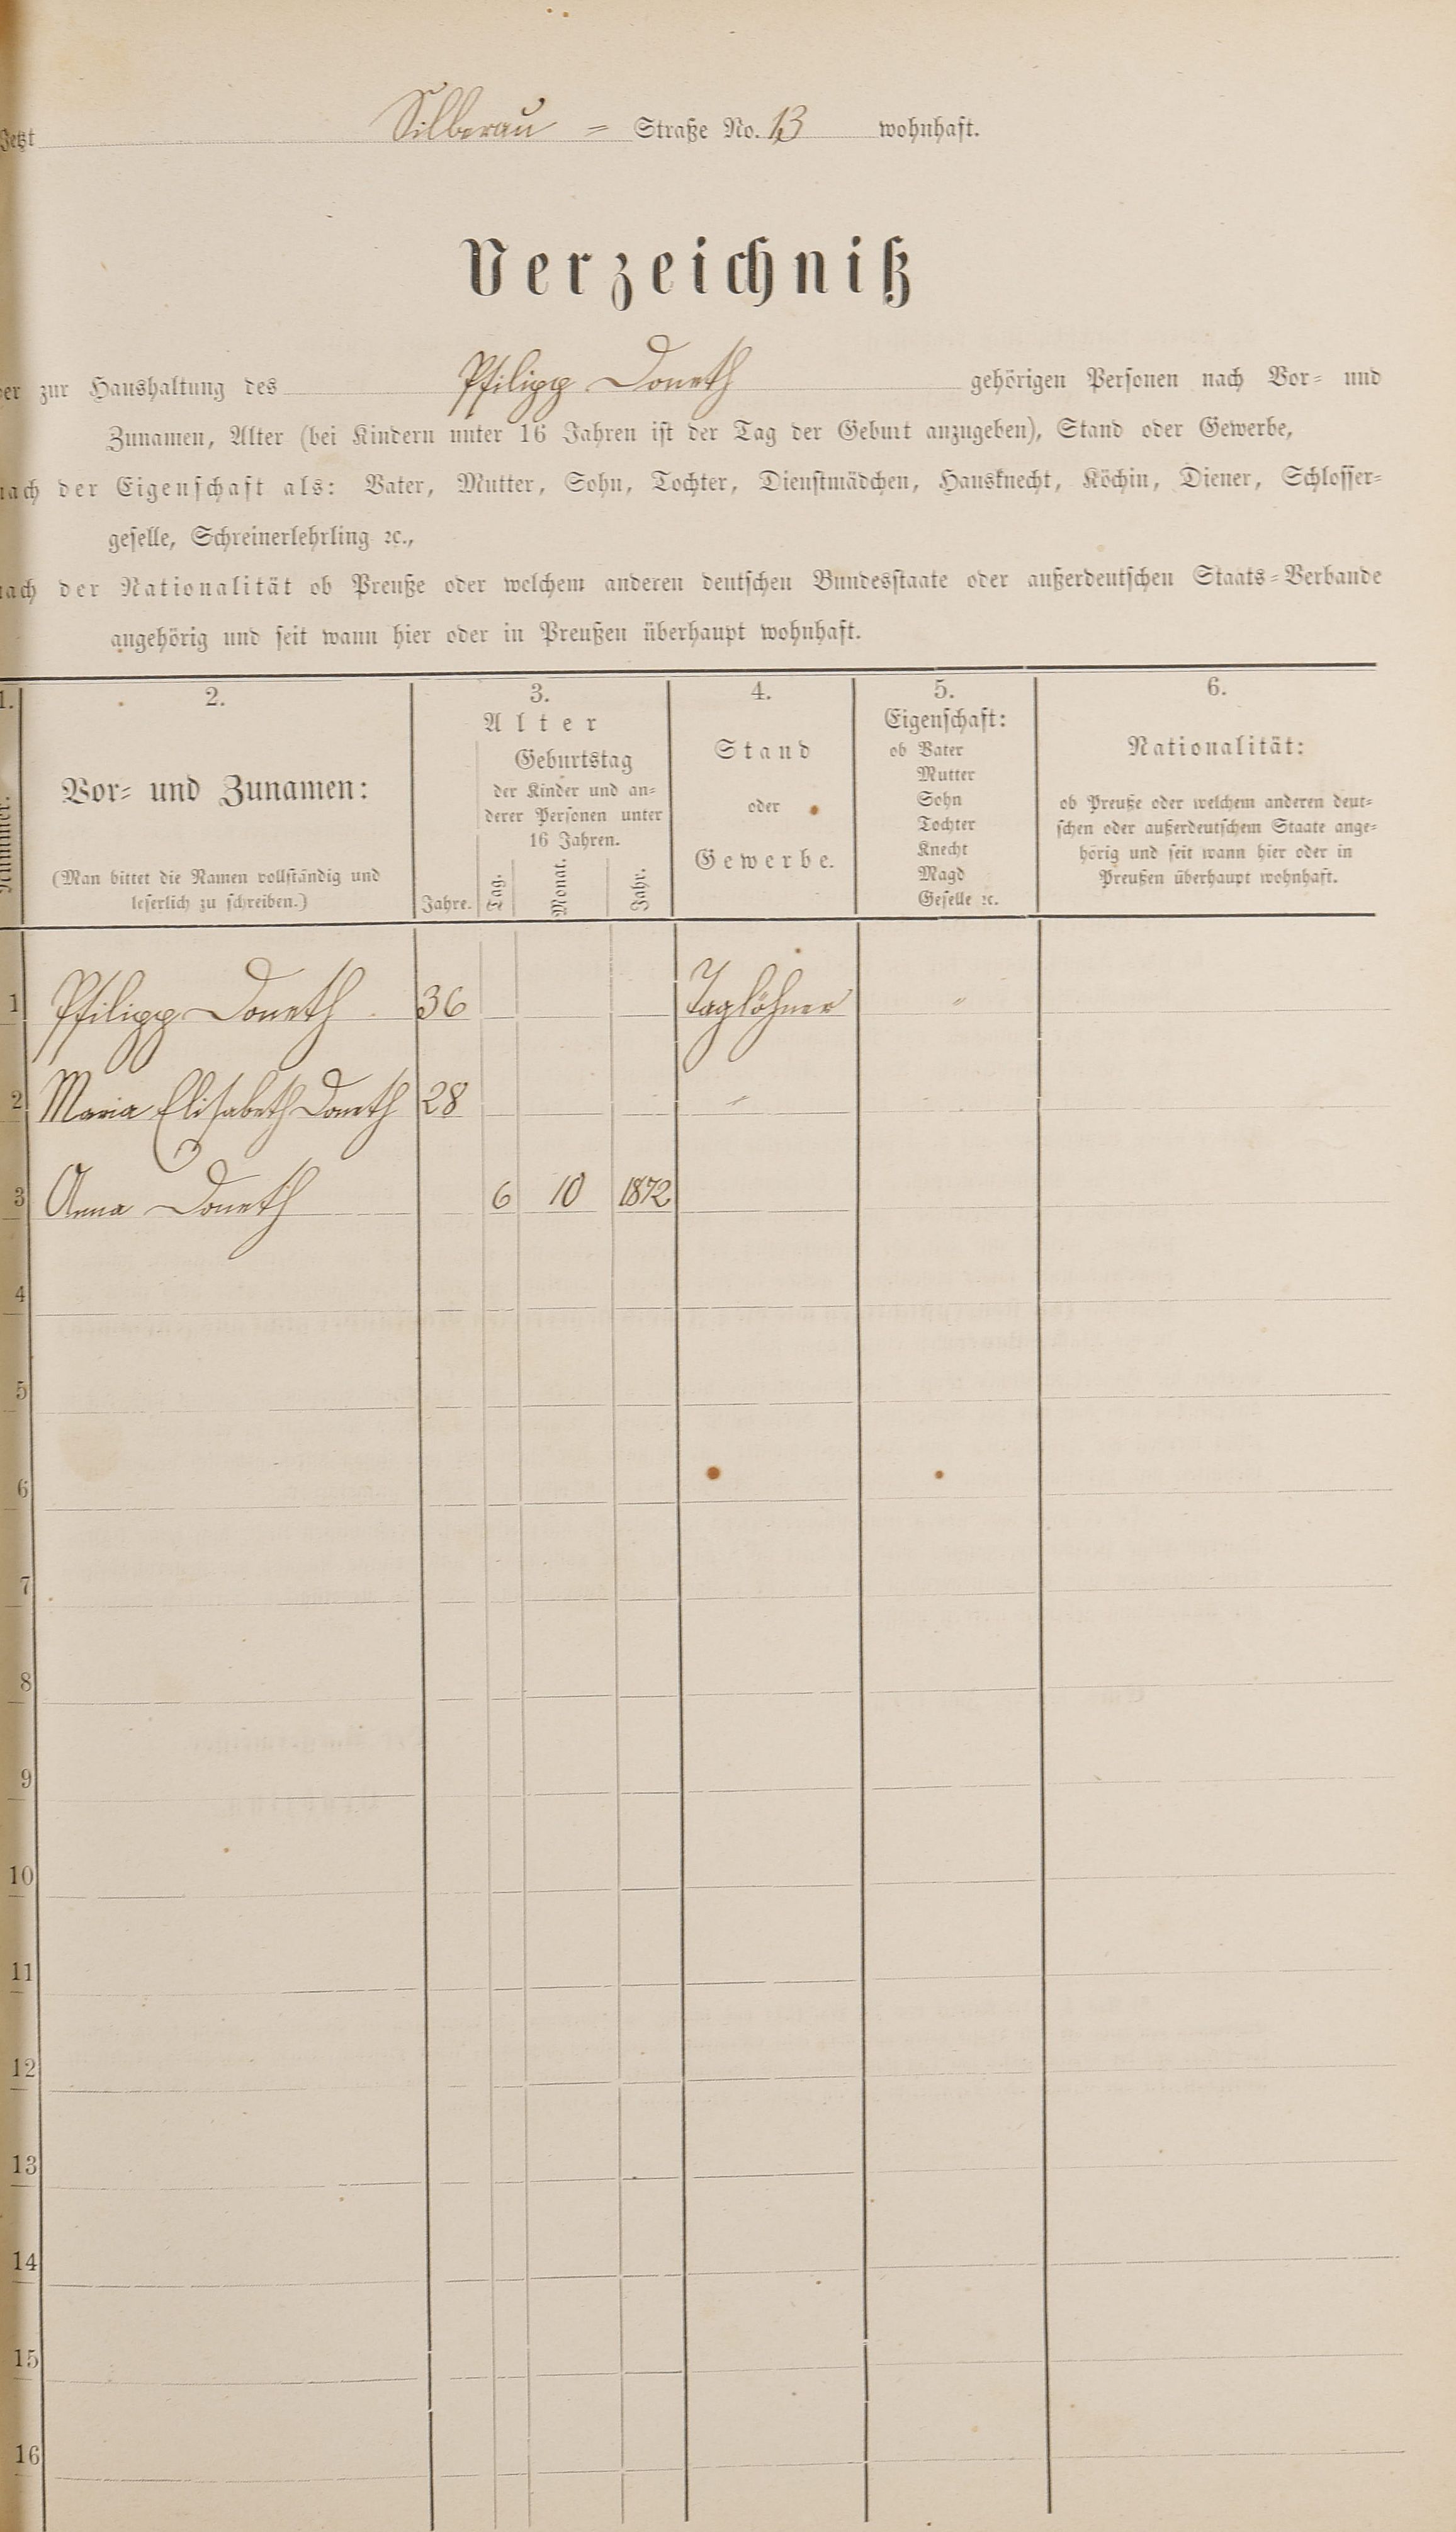 Jetzt Silberau = Straße No. 13 wohnhaft.
Verzeichniß
der zur Haushaltung des Philipp Doneth gehörigen Personen nach Vor- und
Zunamen, Alter (bei Kindern unter 16 Jahren ist der Tag der Geburt anzugeben), Stand oder Gewerbe,
nach der Eigenschaft als: Vater, Mutter, Sohn, Tochter, Dienstmädchen, Hausknecht, Köchin, Diener, Schlosser-
geselle, Schreinerlehrling ꝛc.,
nach der Nationalität ob Preuße oder welchem anderen deutschen Bundesstaate oder außerdeutschen Staats-Verbande
angehörig und seit wann hier oder in Preußen überhaupt wohnhaft.
1. 2. 3. 4. 5. 6.
Nummer.
Vor- und Zunamen:
(Man bittet die Namen vollständig und
leserlich zu schreiben.)
Alter
Geburtstag
der Kinder und an-
derer Personen unter
16 Jahren.
Jahre. Tag. Monat. Jahr.
Stand
oder
Gewerbe.
Eigenschaft:
ob Vater
Mutter
Sohn
Tochter
Knecht
Magd
Geselle ꝛc.
Nationalität:
ob Preuße oder welchem anderen deut-
schen oder außerdeutschem Staate ange-
hörig und seit wann hier oder in
Preußen überhaupt wohnhaft.
1 Philipp Doneth 36 Taglöhner "
2 Maria Elisabeth Doneth 28 "
3 Anna Doneth 6 10 1872
4
5
6
7
8
9
10
11
12
13
14
15
16